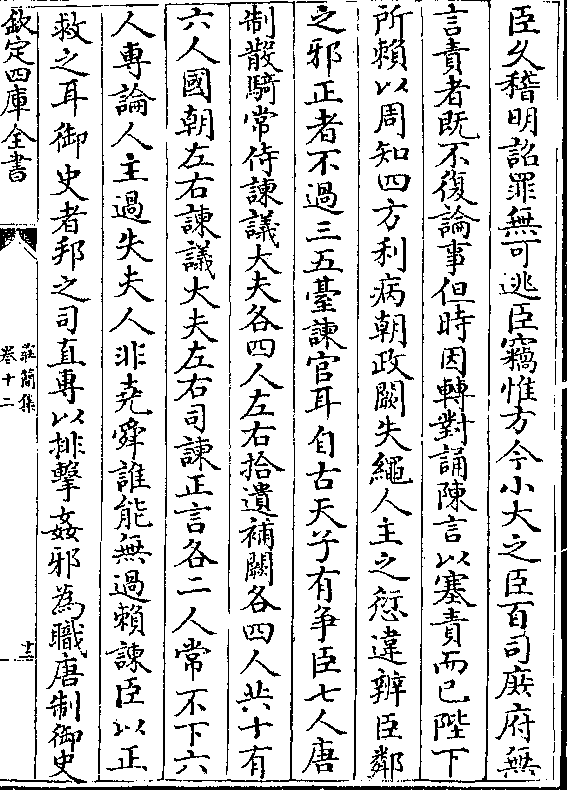 臣久稽明詔罪無可逃臣竊惟方今小大之臣百司庶府無
言責者既不復論事但時因轉對誦陳言以塞責而已陛下
所賴以周知四方利病朝政闕失繩人主之愆違辨臣鄰
之邪正者不過三五臺諫官耳自古天子有爭臣七人唐
制散騎常侍諫議大夫各四人左右拾遺補闕各四人共十有
六人國朝左右諫議大夫左右司諫正言各二人常不下六
人專論人主過失夫人非堯舜誰能無過賴諫臣以正
救之耳御史者邦之司直專以排擊姦邪為職唐制御史
欽定四庫全書
莊簡集
卷十二
十三